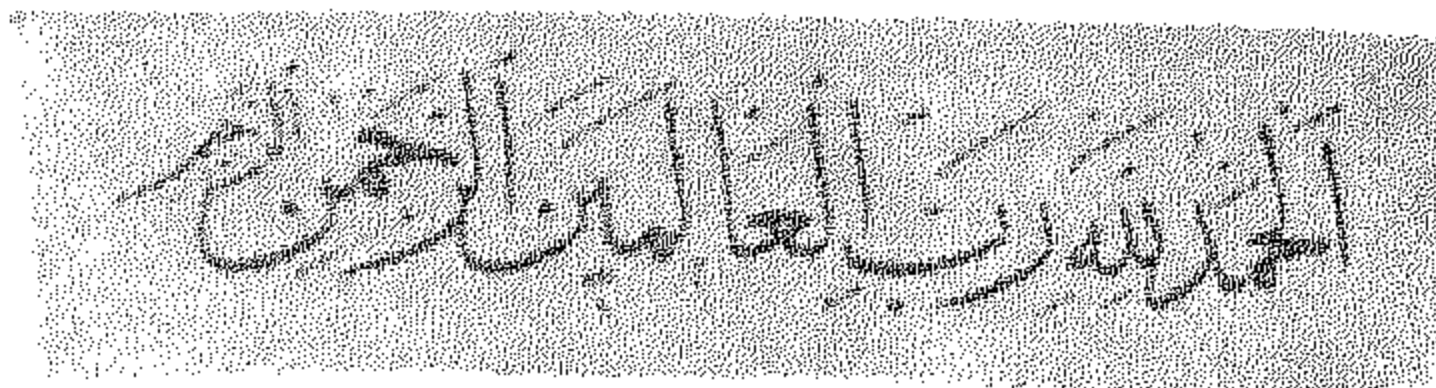 الْحَمْدُ لِلَّهِ رَبِّ الْعَالَمِينَ الرَّحْمَنِ